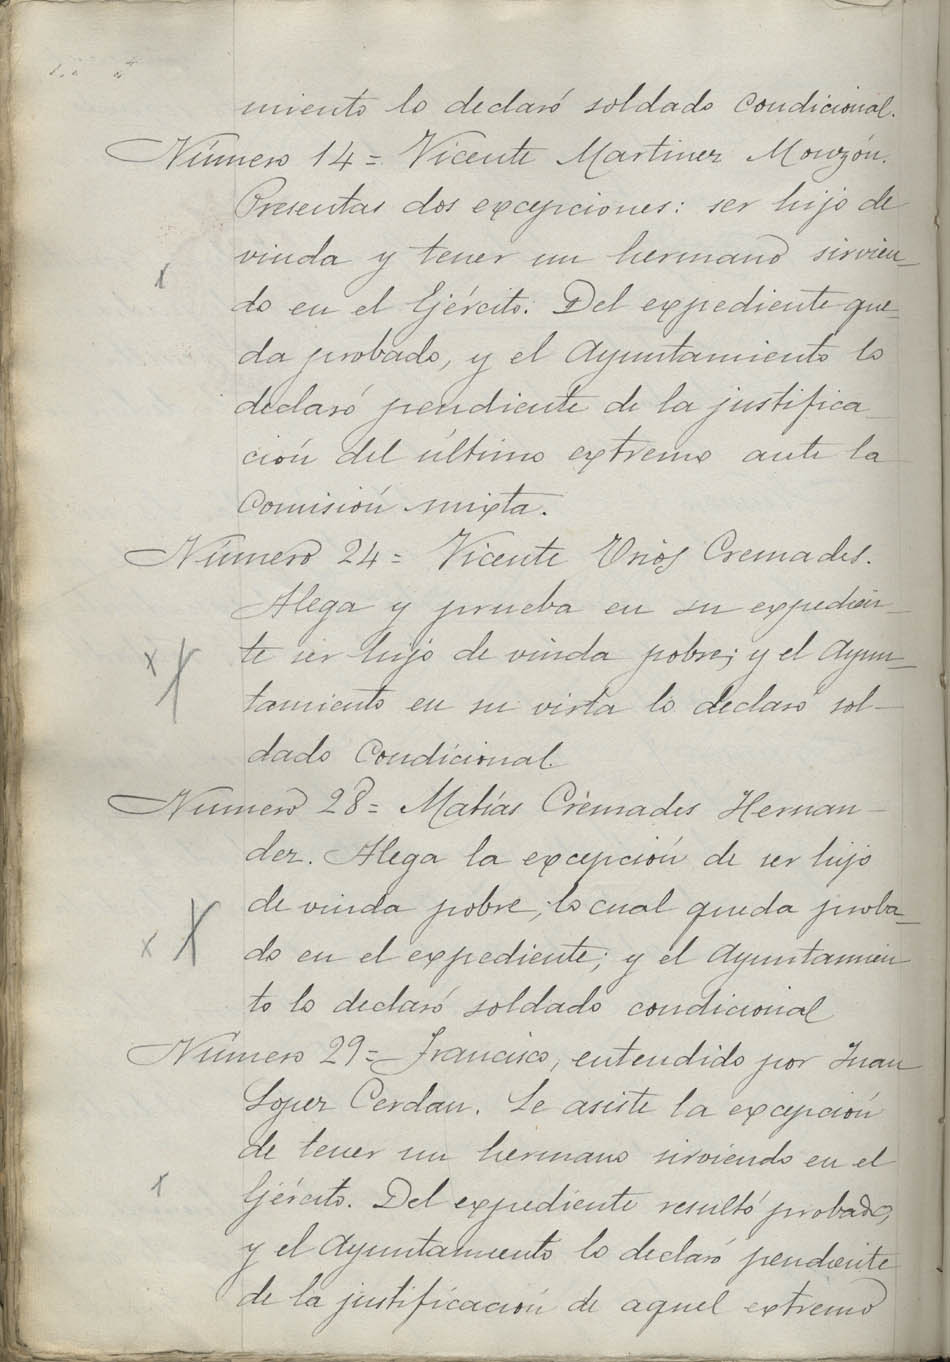 miento lo declaró soldado condicional.
Número 14 = Vicente Martinez Monzón.
Presentas dos excepciones: ser hijo de
viuda y tener un hermano sirvien_
do en el Ejército. Del expediente que_
da probado, y el Ayuntamiento lo
declaró pendiente de la justifica_
ción del último extremo ante la
Comisión mixta.
Número 24 = Vicente Oriós Cremades.
Alega y prueba en su expedien_
te ser hijo de viuda pobre; y el Ayun_
tamiento en su vista lo declaró sol_
dado Condicional.
Número 28 = Matías Crémades Hernan_
dez. Alega la excepción de ser hijo
de viuda pobre, lo cual queda proba_
do en el expediente; y el Ayuntamien
to lo declaró soldado condicional
Número 29 = Francisco, entendido por Juan
Lopez Cerdan. Le asiste la excepción
de tener un hermano sirviendo en el
Ejército. Del expediente resultó probado,
y el Ayuntamiento lo declaró pendiente
de la justificación de aquel extremo